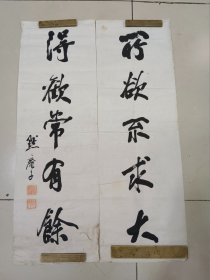 所欲不求大
得歡常有餘